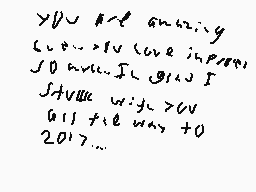 you are amazing
have improved
so much I'm glad I
stuck with you
all the way to
2017...